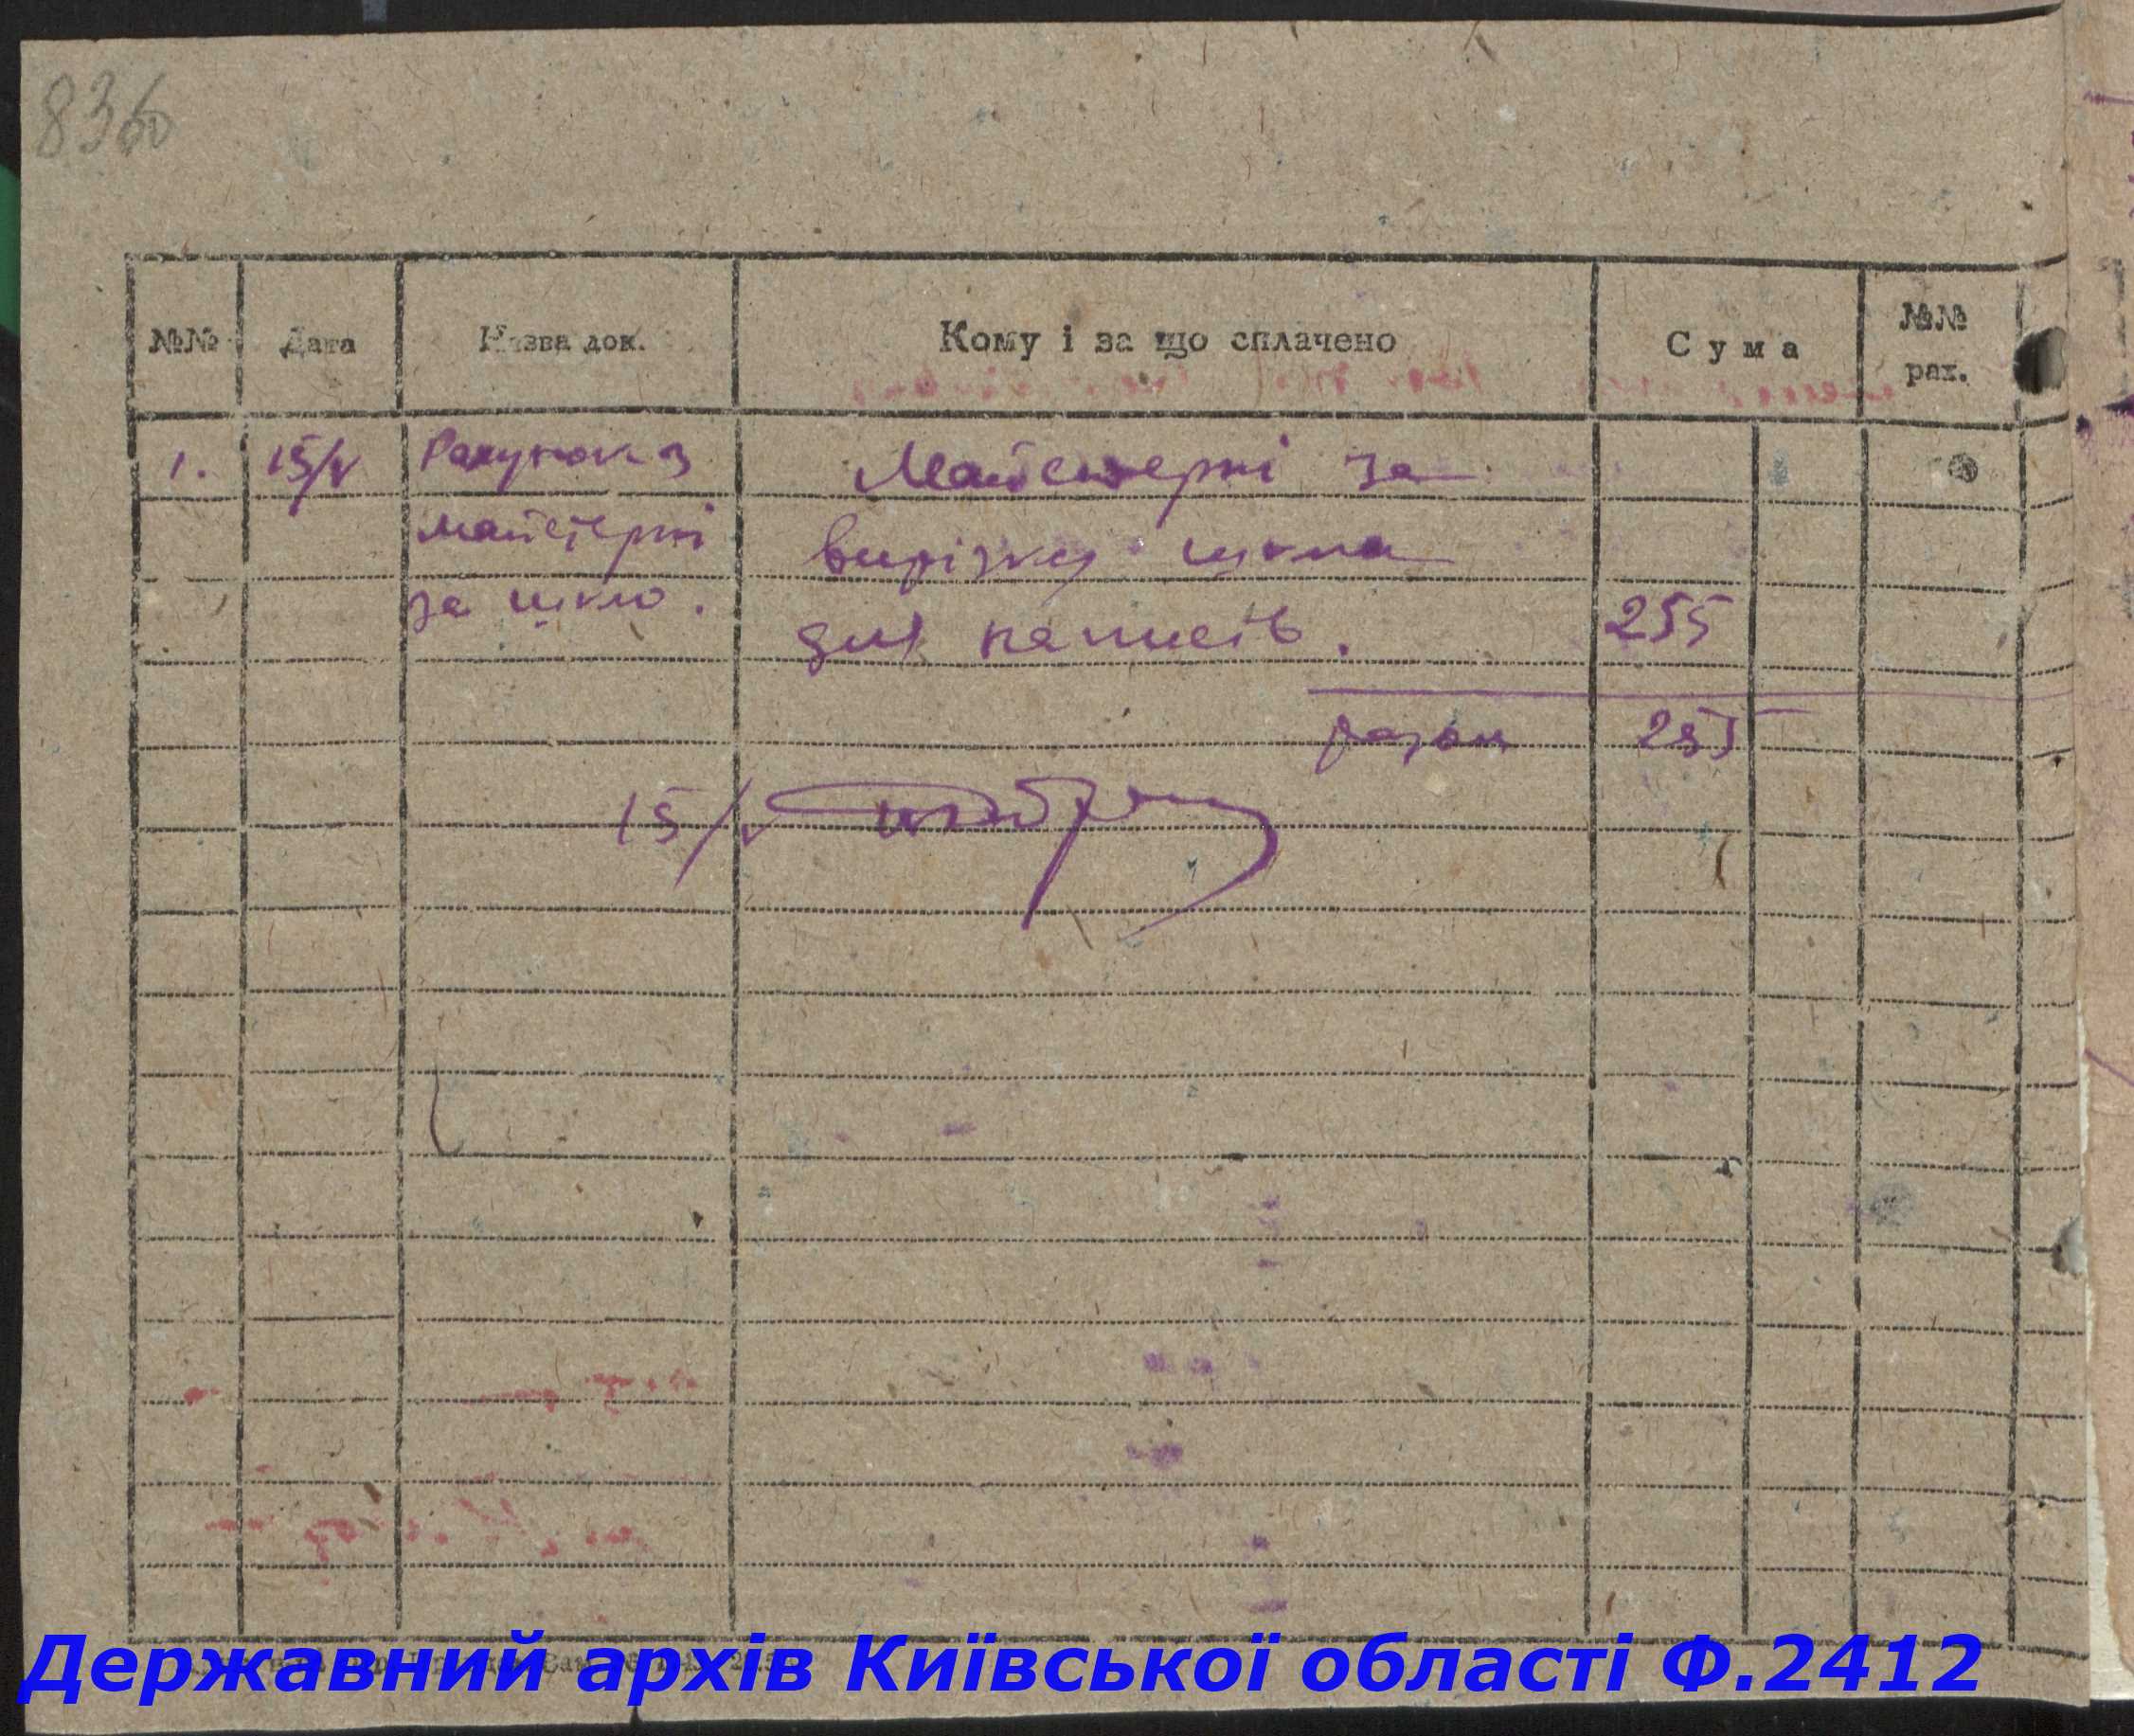 836
№№ Дата Назва док. Кому і за що сплачено Сума №№ рах.
1. 15/V Рахунок з Майстерні за
майстерні вирізку шкла
за шкло. для написів. 255
разом 255
15/V
Державний архів Київської області Ф.2412